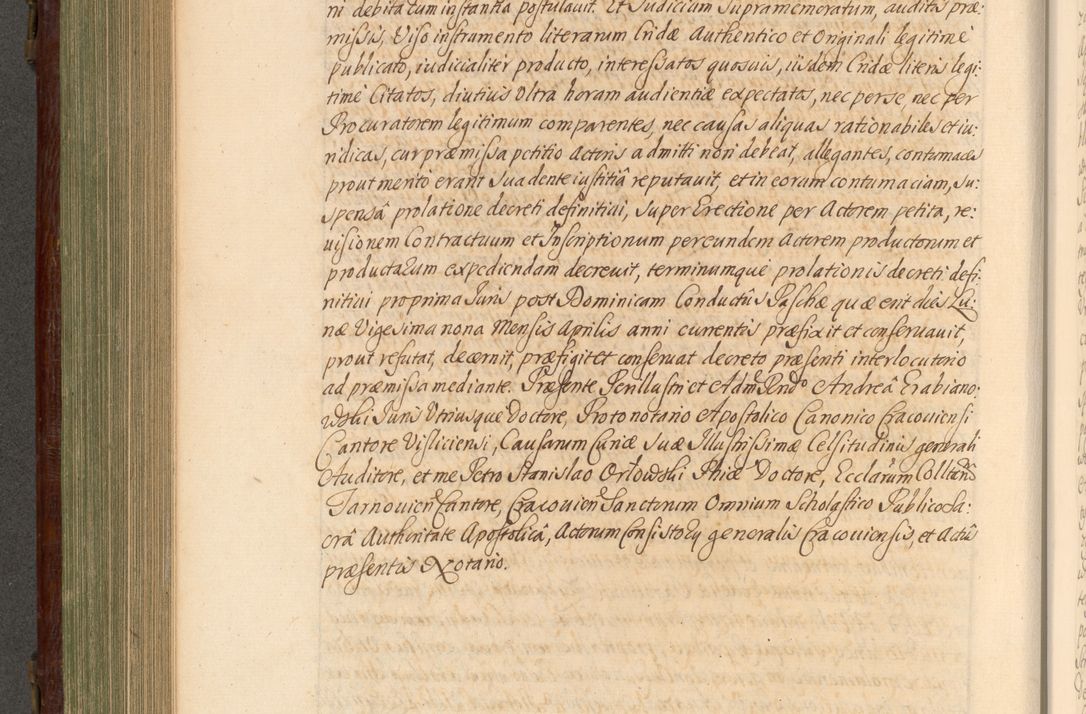 ni debita cum instantia postulauit. Et Judicium Supramemoratum, auditis præ:
missis, Viso instrumento literarum Cridæ Authentico et Originali legitime
publicato, iudicialiter producto, interessatos quosuis, iisdem Cridæ literis legi:
time Citatos, diutius Ultra horam audientiæ expectatos, nec per se, nec per
Procuratorem legitimum comparentes, nec causas aliquas rationabiles et iu:
ridicas, cur præmissa petitio Actoris admitti non debeat, allegantes, contumaces
prout merito erant Suadente iustitiâ reputauit, et in eorum contumaciam, su:
spensâ prolatione decreti definitiui, Super Erectione per Actorem petita, re:
uisionem Contractuum et Inscriptionum per eundem Actorem productorum et
productarum expediendam decreuit, terminumque prolationis decreti defi:
nitiui pro prima Juris post Dominicam Conductûs Paschæ quæ erit dies Lu:
næ Vigesima nona Mensis Aprilis anni currentis præfixit et conseruauit,
prout refutat, decernit, præfigit et conseruat decreto præsenti interlocutorio
ad præmissa mediante. Præsente Perillustri et Adm Rendo Andreâ Grabiano:
wski Juris Utriusque Doctore, Protonotario Apostolico Canonico Cracouiensi
Cantore Visliciensi, Causarum Curiæ Suæ Illustrissimæ Celsitudinis generali
Auditore, et me Petro Stanislao Orlowski Phiæ Doctore, Ecclarum Colltarum
Tarnouien Cantore, Cracouien Sanctorum Omnium Scholastico Publico Sa:
crâ Authoritate Apostolicâ, Actorum Consistory generalis Cracouiensis, et Actûs
præsentis Notario.